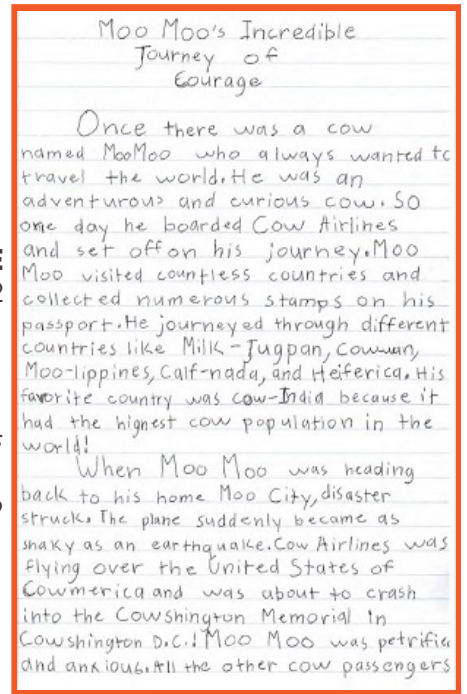 Moo Moo's Incredible
Journey of
Courage
Once there was a cow
named MooMoo who always wanted to
travel the world. He was an
adventurous and curious cow. So
one day he boarded Cow Airlines
and set off on his journey. Moo
Moo visited countless countries and
collected numerous stamps on his
passport. He journeyed through different
countries like Milk-Jugpan, Cowwan,
Moo-lippines, Calf-nada, and Heiferica. His
favorite country was Cow-India because it
had the highest cow population in the
world!
When Moo Moo was heading
back to his home Moo City, disaster
struck. The plane suddenly became as
shaky as an earthquake. Cow Airlines was
flying over the United States of
Cowmerica and was about to crash
into the Cowshington Memorial in
Cowshington D.C.! Moo Moo was petrifie
and anxious. All the other cow passengers